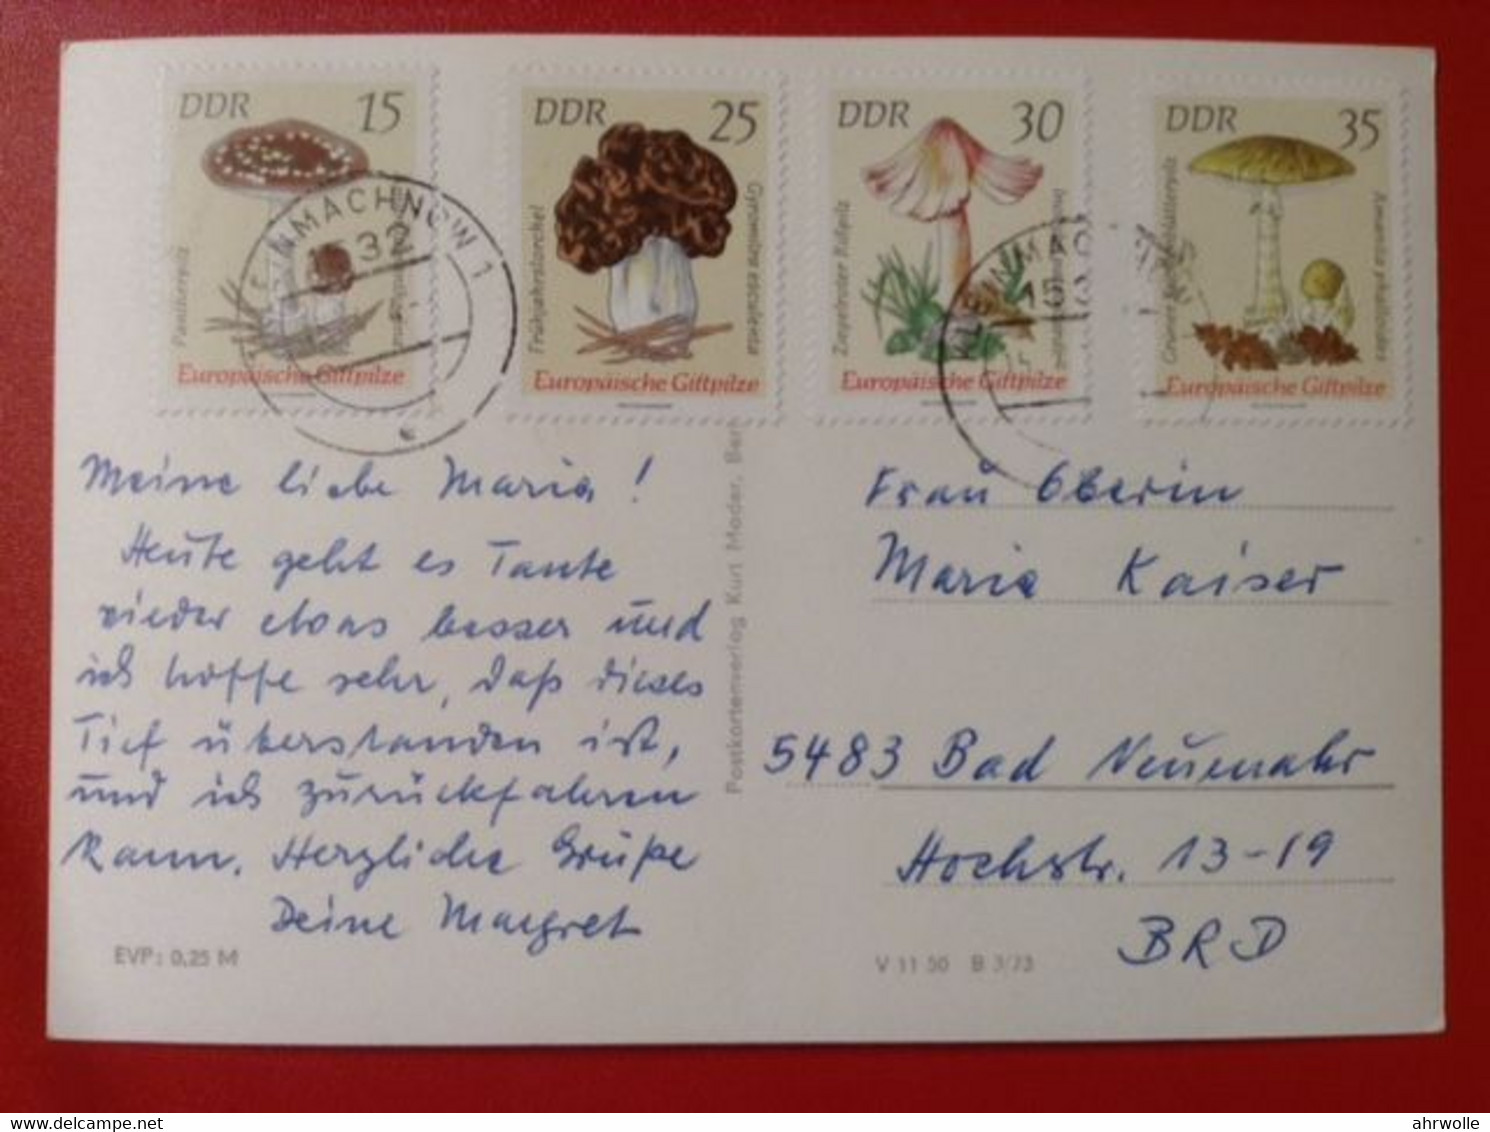 DDR 15
Pantherpilz
Europäische Giftpilze
DDR 25
Frühjahrslorchel
Gyromitra esculenta
Europäische Giftpilze
DDR 30
Ziegelroter Rißpilz
Europäische Giftpilze
DDR 35
Amanita phalloides
Europäische Giftpilze
NMACHNOW 1
1532
NMACHNOW
Meine liebe Maria!
Heute geht es Tante
wieder etwas besser und
ich hoffe sehr, daß dieses
Tief überstanden ist,
und ich zurückfahren
kann. Herzliche Grüße
Deine Margret
EVP: 0,25 M
Postkartenverlag Kurt Mader, Berl
Frau Oberin
Maria Kaiser
5483 Bad Neuenahr
Hochstr. 13-19
BRD
V 11 50 B 3/73
ahrwolle